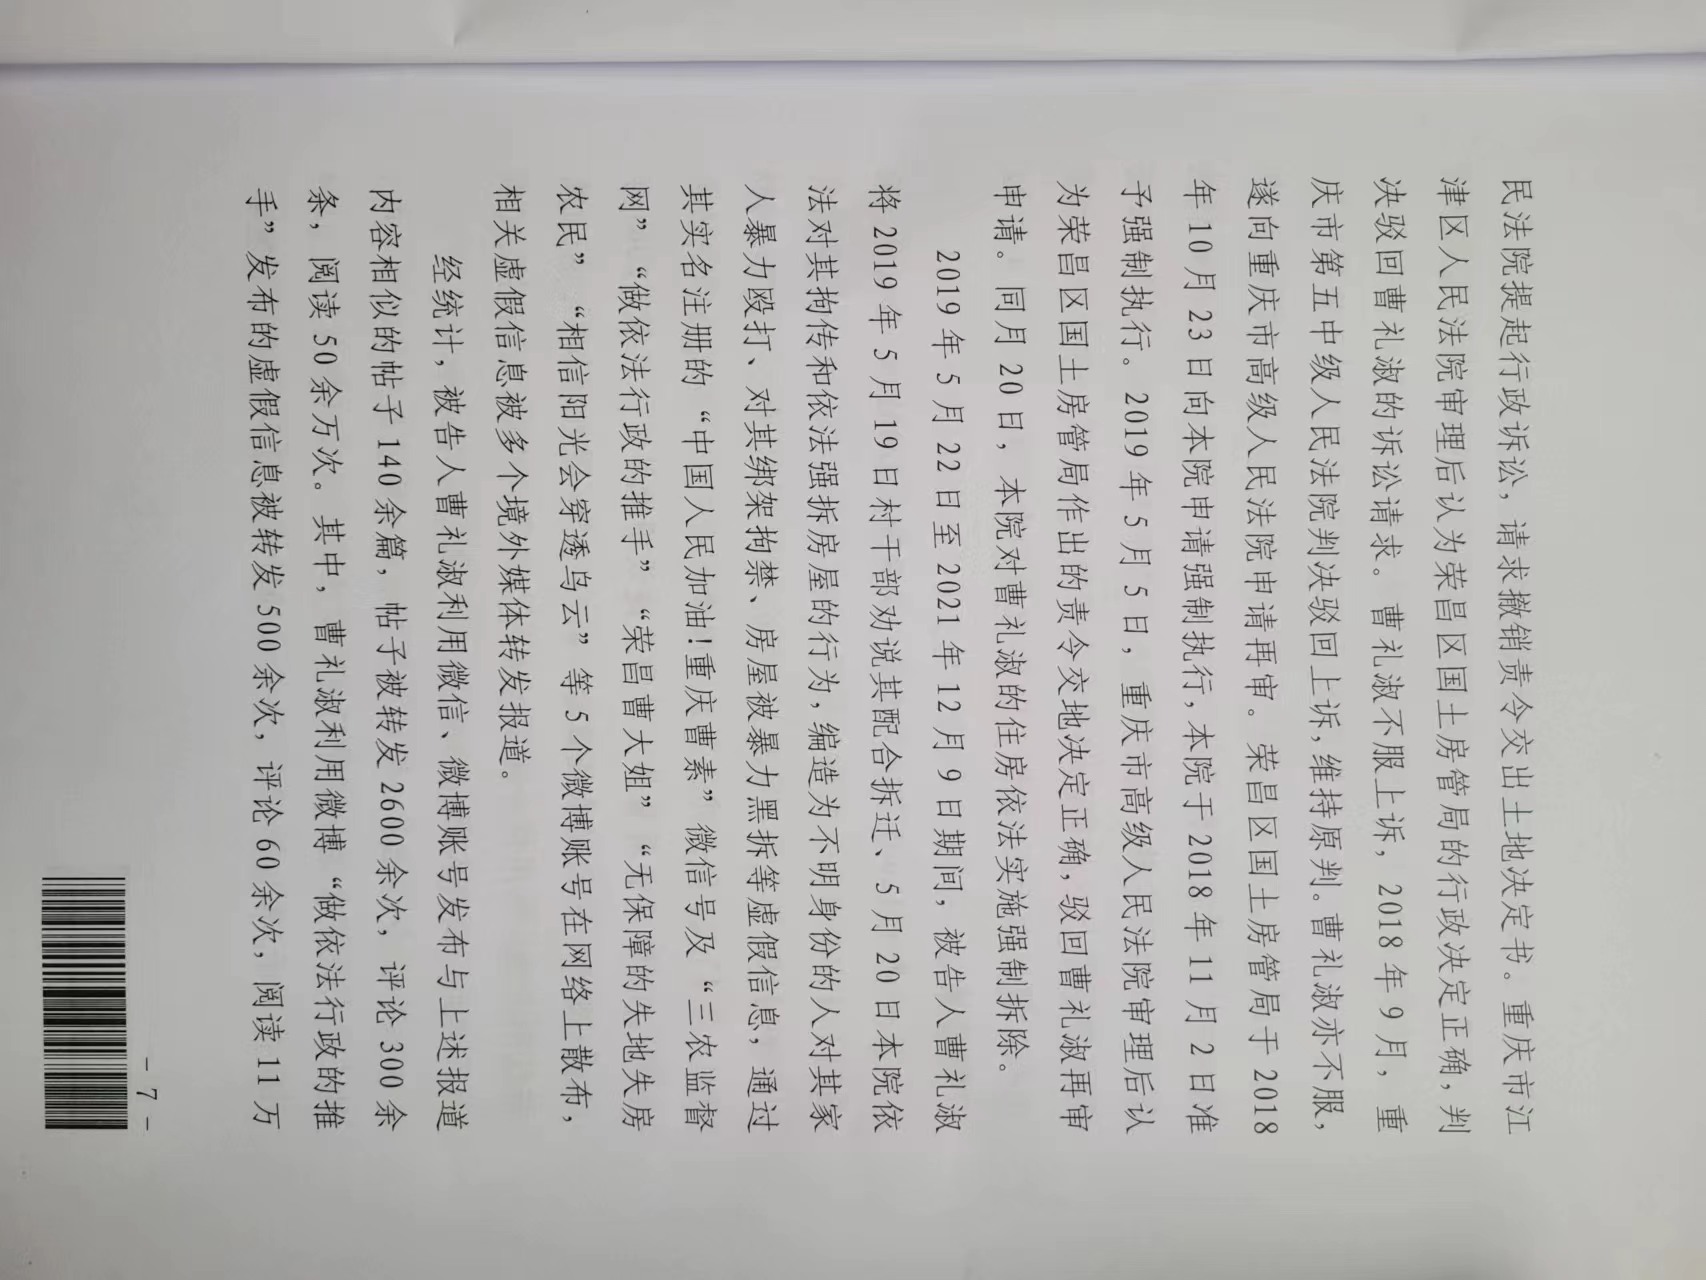 民法院提起行政诉讼，请求撤销责令交出土地决定书。重庆市江
津区人民法院审理后认为荣昌区国土房管局的行政决定正确，判
决驳回曹礼淑的诉讼请求。曹礼淑不服上诉，2018年9月，重
庆市第五中级人民法院判决驳回上诉，维持原判。曹礼淑亦不服，
遂向重庆市高级人民法院申请再审。荣昌区国土房管局于2018
年10月23日向本院申请强制执行，本院于2018年11月2日准
予强制执行。2019年5月5日，重庆市高级人民法院审理后认
为荣昌区国土房管局作出的责令交地决定正确，驳回曹礼淑再审
申请。同月20日，本院对曹礼淑的住房依法实施强制拆除。
2019年5月22日至2021年12月9日期间，被告人曹礼淑
将2019年5月19日村干部劝说其配合拆迁、5月20日本院依
法对其拘传和依法强拆房屋的行为，编造为不明身份的人对其家
人暴力殴打、对其绑架拘禁、房屋被暴力黑拆等虚假信息，通过
其实名注册的“中国人民加油！重庆曹素”微信号及“三农监督
网”“做依法行政的推手”“荣昌曹大姐”“无保障的失地失房
农民”“相信阳光会穿透乌云”等5个微博账号在网络上散布，
相关虚假信息被多个境外媒体转发报道。
经统计，被告人曹礼淑利用微信、微博账号发布与上述报道
内容相似的帖子140余篇，帖子被转发2600余次，评论300余
条，阅读50余万次。其中，曹礼淑利用微博“做依法行政的推
手”发布的虚假信息被转发500余次，评论60余次，阅读11万
- 7 -